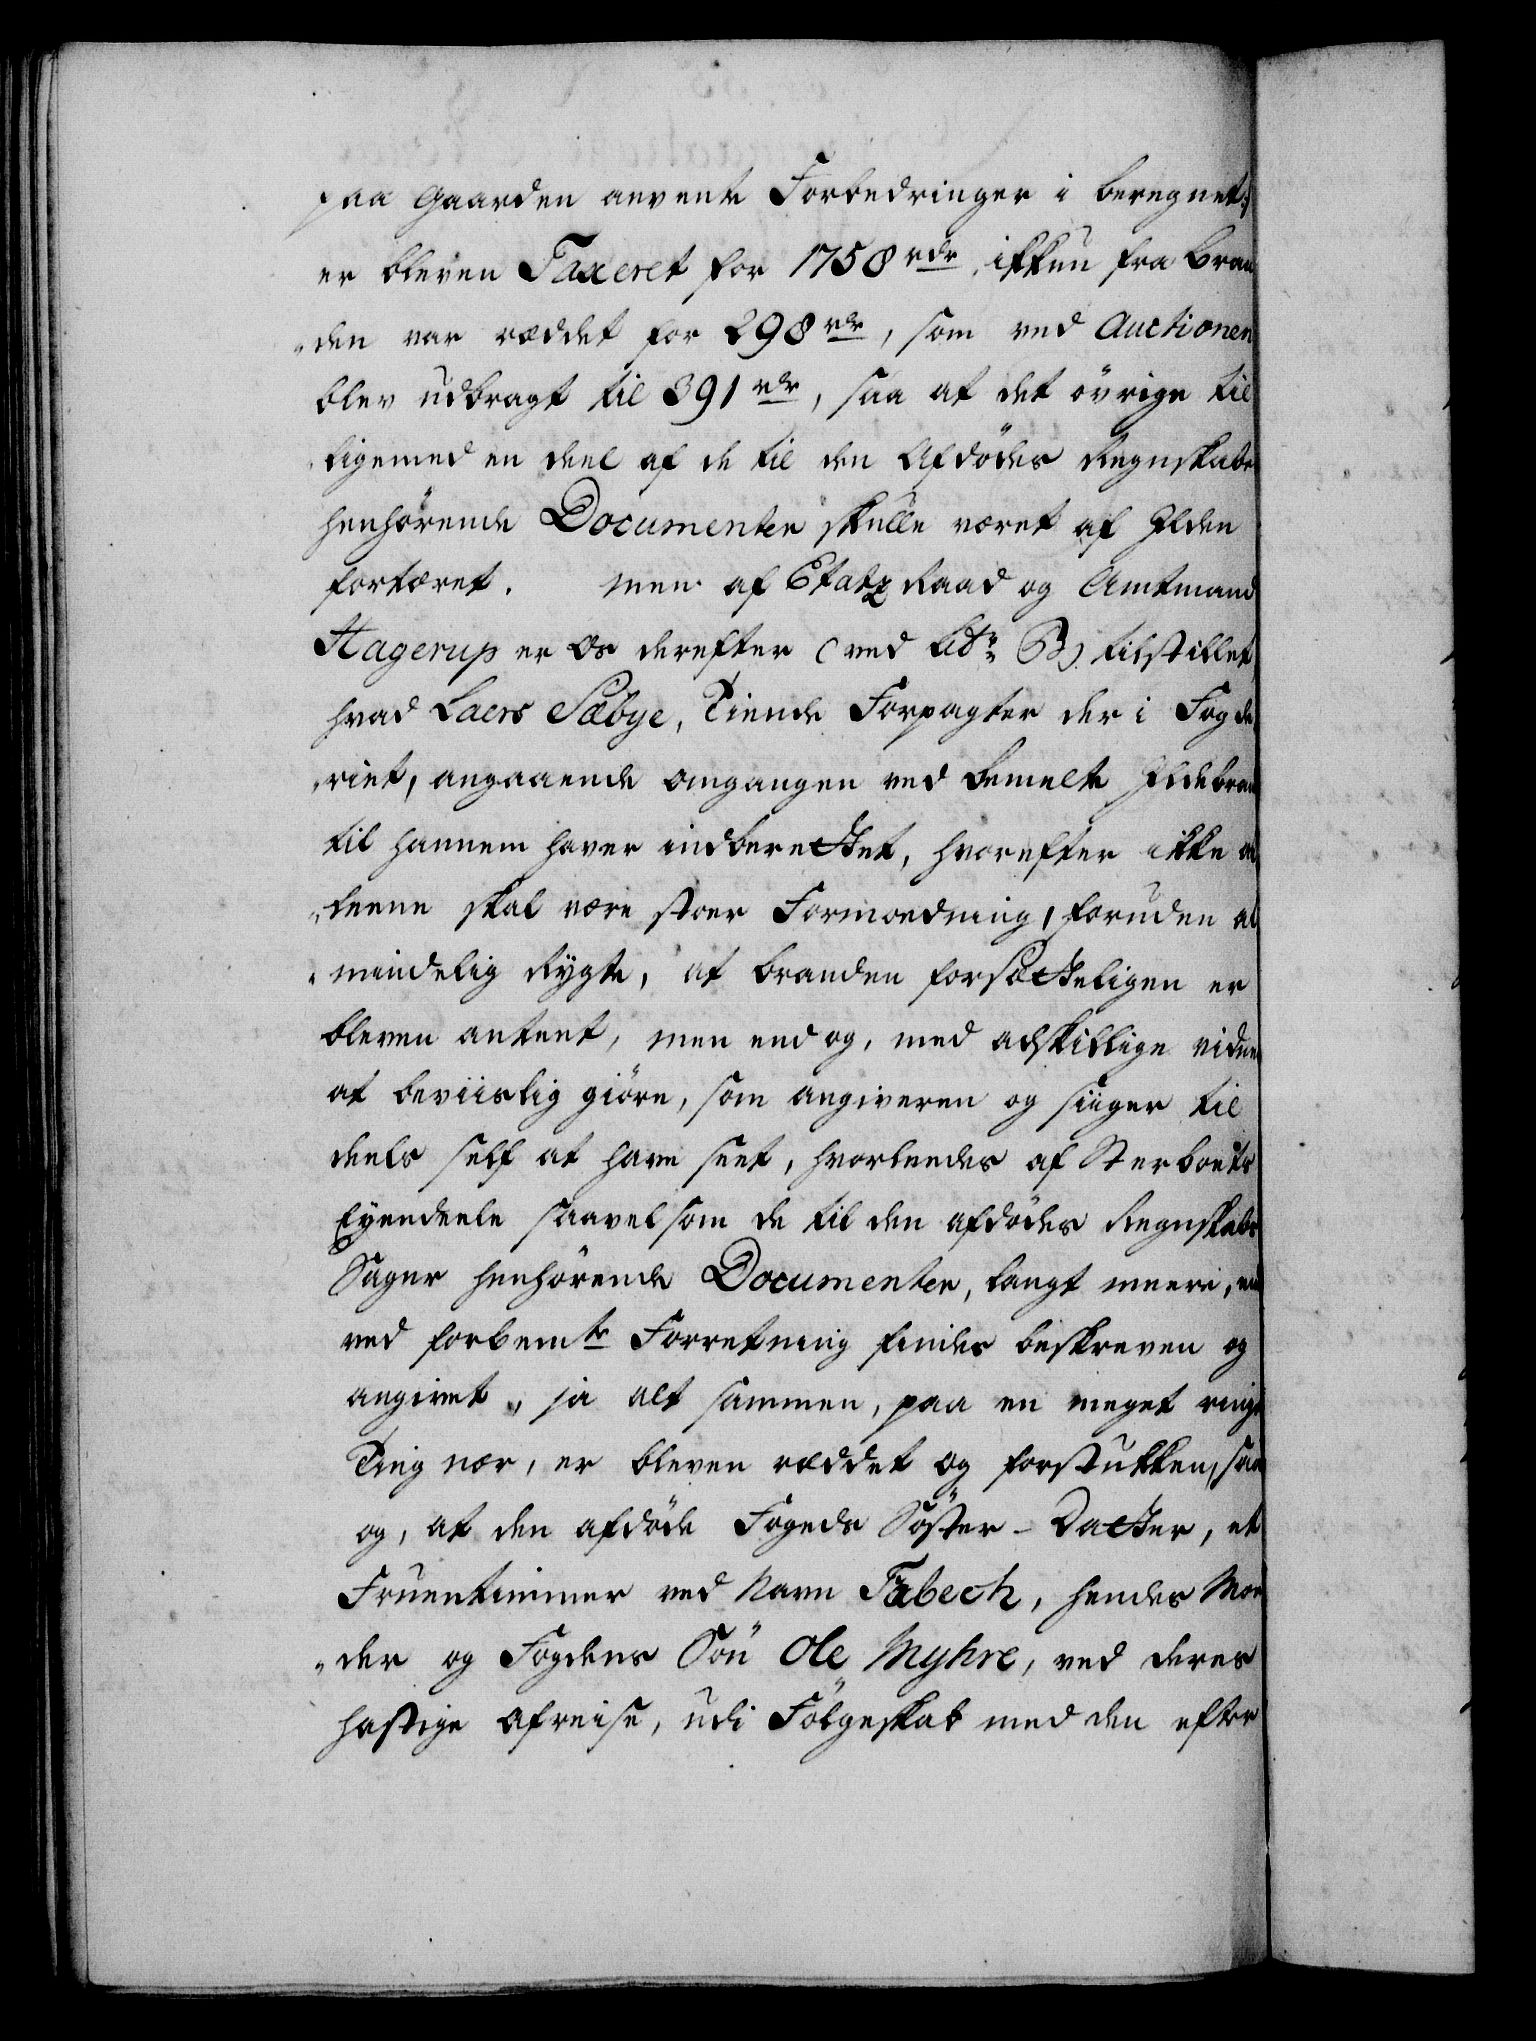 paa Gaarden anvente Forbedringer i beregnet)
er bleven Taxeret for 1758 rdr, ikkun fra Bran
„den var reddet for 298 rdr, som ved Auctionen
blev udbragt til 391 rdr, saa at det övrige til
„ligemed en deel af de til den Afdödes Regnskabe
henhörende Documenter skulle været af Ilden
fortæret. men af Etatz Raad og Amtmand
Hagerup er os derefter (ved Litr: B) tilstillet
hvad Laers Sæbye, Tiende Forpagter der i Fogde
„riet, angaaende omgangen ved bemelte Ildebran
til hannem haver indberettet, hvorefter ikke al
„leene skal være stoer Formoedning, foruden al
„mindelig Rygte, at branden forsetteligen er
bleven antent, men end og, med adskillige vidne
at beviislig giöre, som angiveren og siiger til
deels self at have seet, hvorledes af Sterboets
Eyendeele saavelsom de til den afdödes Regnskabs
Sager henhörende Documenter, langt meere, end
ved forbemte Forretning findes beskreven og
angivet, ja alt sammen, paa en meget ringe
Ting nær, er bleven reddet og forstukken, saa
og, at den afdöde Fogeds Söster-Datter, et
Fruentimmer ved Navn Fabech, hendes Moe
„der og Fogdens Sön Ole Myhre, ved deres
hastige afreise, udi Fölgeskab med den efter